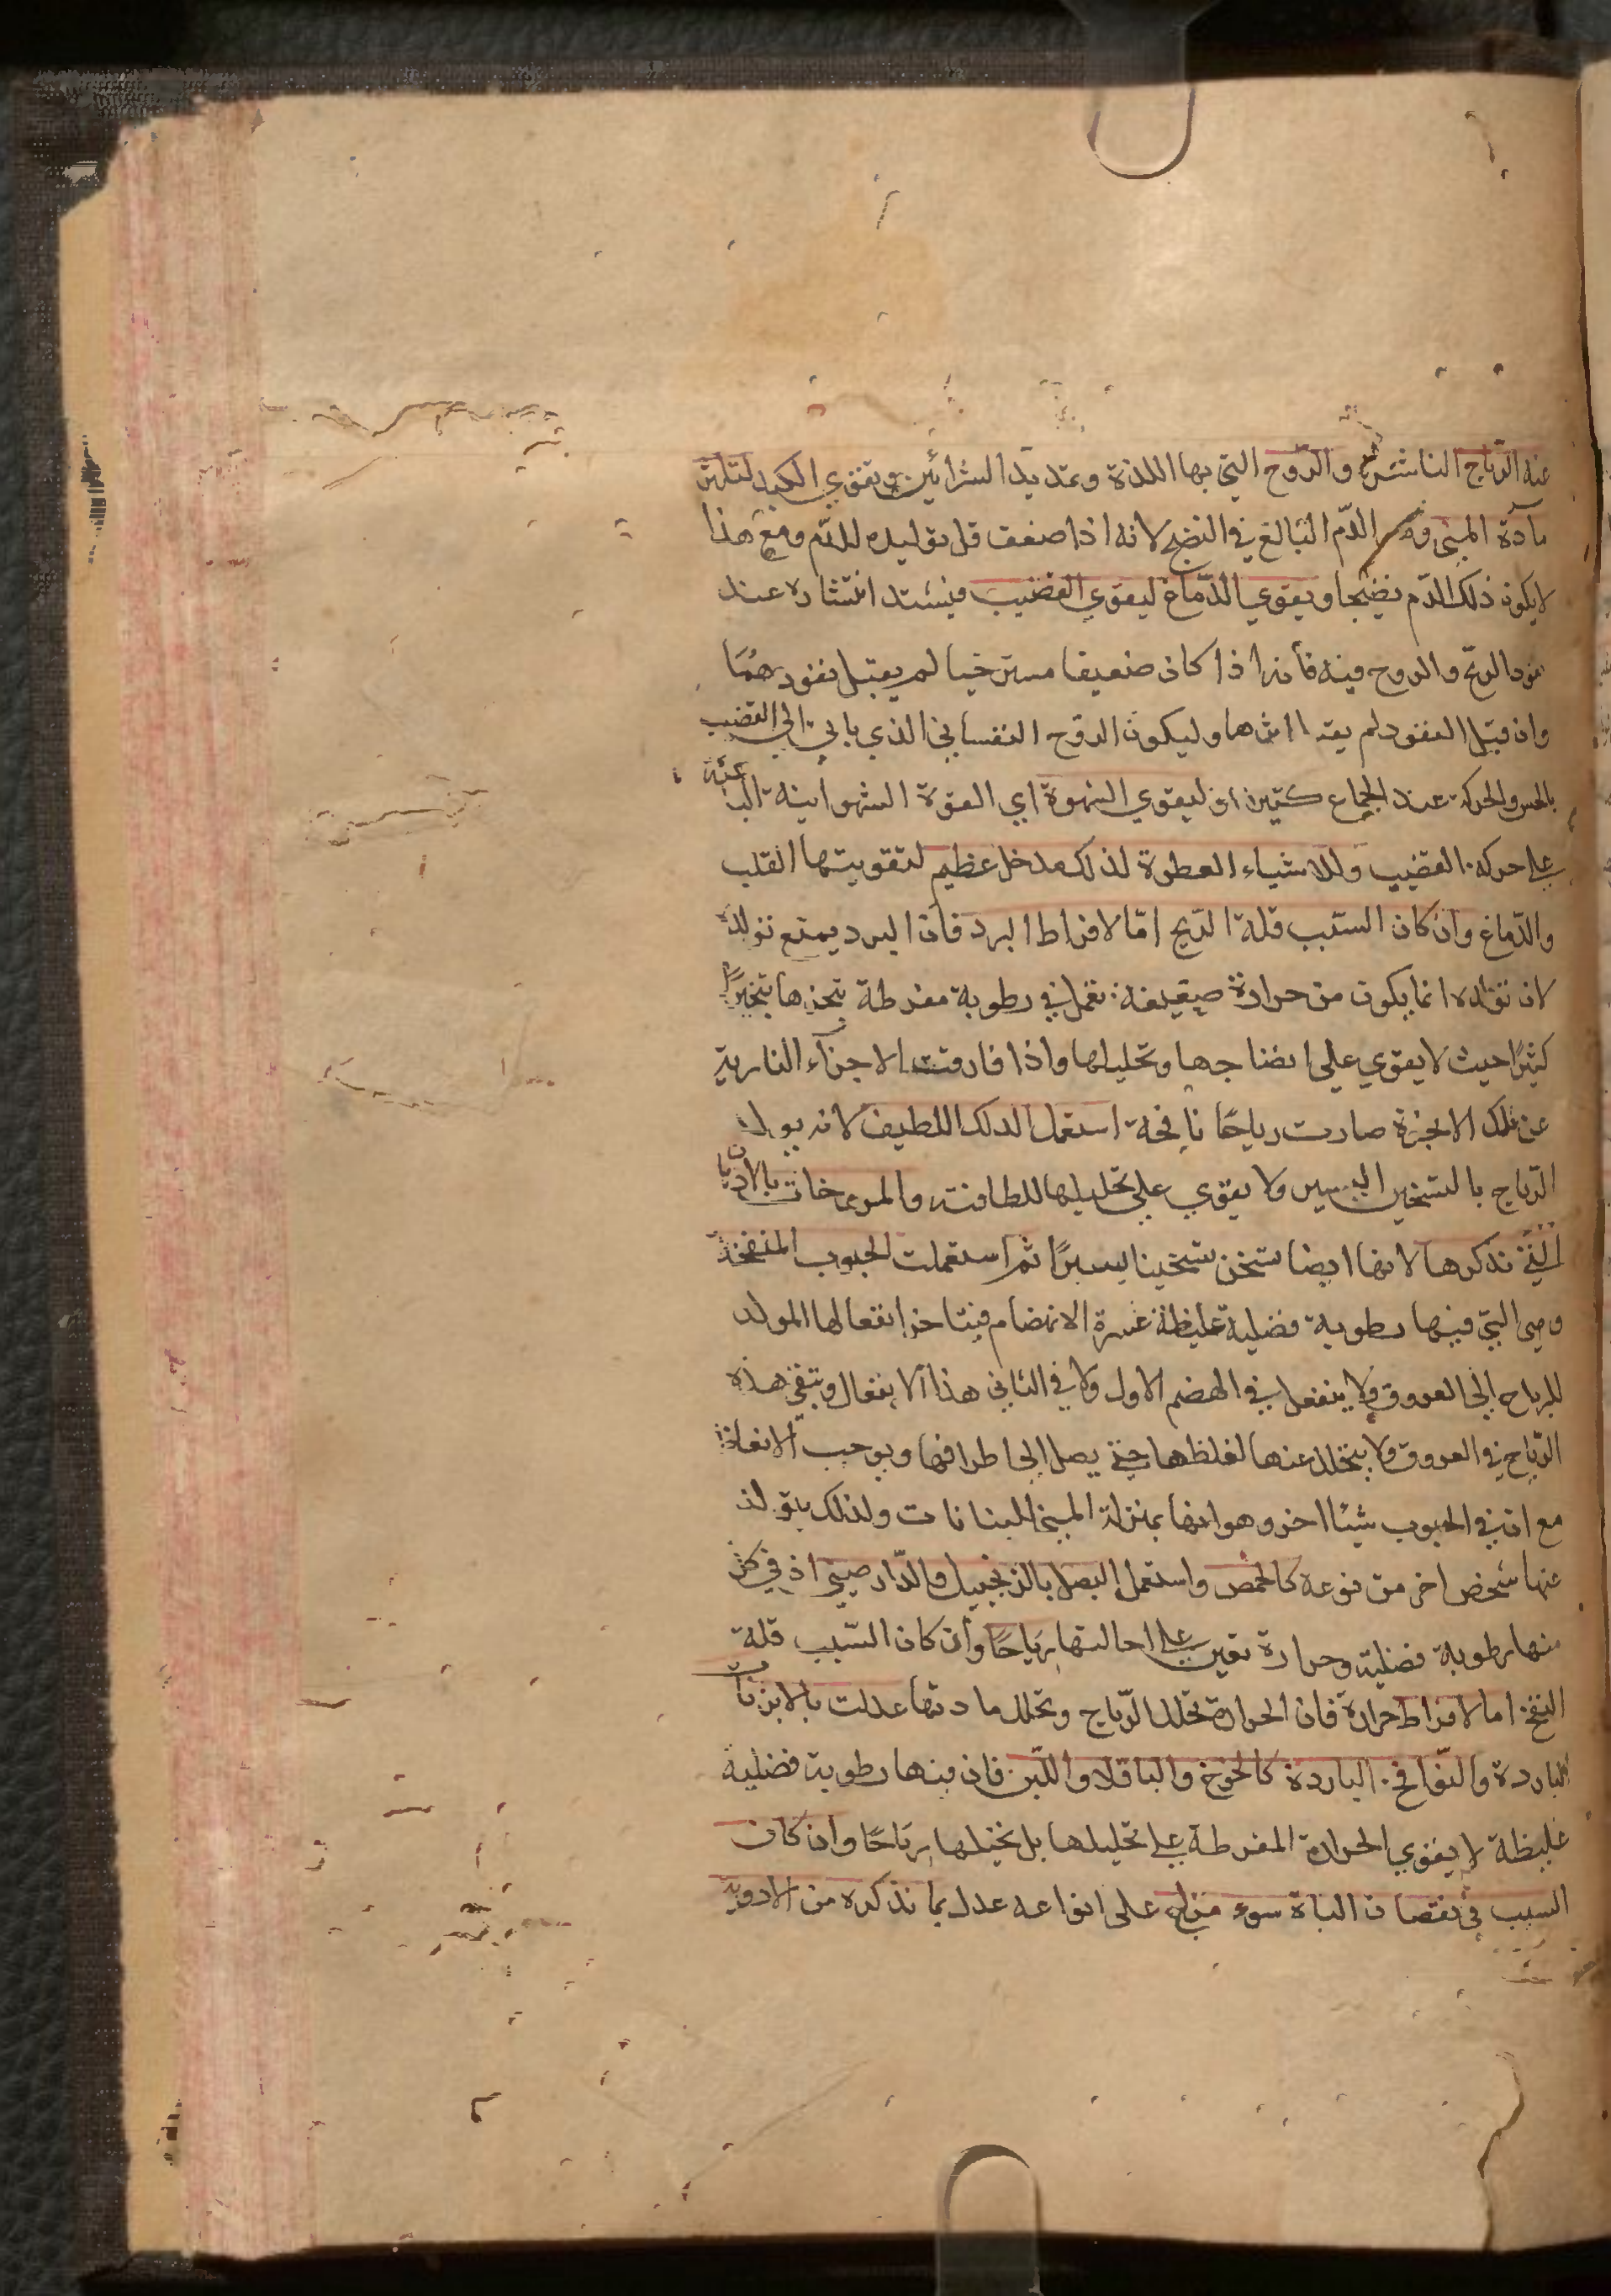 عنه الرياح الناشرة والروح التي بها اللذة وتمديد الشرائين وتقوي الكبد لتكثر
مادة المني وهو الدم البالغ في النضج لانه اذا ضعف قل توليده للدم ومع هذا
لا يكون ذلك الدم نضيجا ويقوي الدماغ ليقوي القضيب فيشتد انتشاره عند
نفوذ الريح والروح فيه فأنه اذا كان ضعيفا مسترخيا لم يقبل نفوذهما
وان قبل النفوذ لم يقبل اثرهما وليكون الروح النفساني الذي ياتي الى القضيب
بالحس والحركة عند الجماع كثيرا او ليقوي الشهوة اي القوة الشهوانية الباعثة
على حركة القضيب وللاشياء العطرة لذلك مدخل عظيم لتقويتها القلب
والدماغ وان كان السبب قلة الريح امّا لافراط البرد فان البرد يمنع تولده
لان تولده انما يكون من حرارة ضعيفة تعمل في رطوبة مفرطة تبخرها تبخيرًا
كثيرًا حيث لا يقوي على انضاجها وتحليلها واذا فارقت الاجزآء النارية
عن تلك الابخرة صارت رياحًا نافخة استعمل الدلك اللطيف لانه يولد
الرياح بالتسخين اليسير ولا يقوي على تحليلها للطافته والمروخات بالادهان
التي نذكرها لانها ايضا تسخن تسخينا يسيرًا ثم استعملت الحبوب المنفخة
وهي التي فيها رطوبة فضلية غليظة عسرة الانهضام فيتاخر انفعالها المولد
للرياح الى العروق ولا ينفعل في الهضم الاول ولا في الثاني هذا الانفعال وتبقى هذه
الرياح في العروق ولا يتحلل عنها لغلظها حتى يصل الى اطرافها ويوجب الانعاظ
مع ان في الحبوب شيئا اخر وهو انها بمنزلة المني للنباتات ولذلك يتولد
عنها شخص اخر من نوعه كالحمص واستعمل البصل بالزنجبيل والدارصيني اذ في كل
منها رطوبة فضلية وحرارة تعين على احالتها رياحًا وان كان السبب قلة
النفخ اما لافراط حرارة فان الحرارة تحلل الرياح وتحلل مادتها عدلت بالابزنات
الباردة والنوافخ الباردة كالخوخ والباقلا واللبن فان فيها رطوبة فضلية
غليظة لا يقوي الحرارة المفرطة على تحليلها بل تحيلها رياحًا وان كان
السبب في نقصان الباه سوء مزاج على انواعه عدل بما نذكره من الادوية